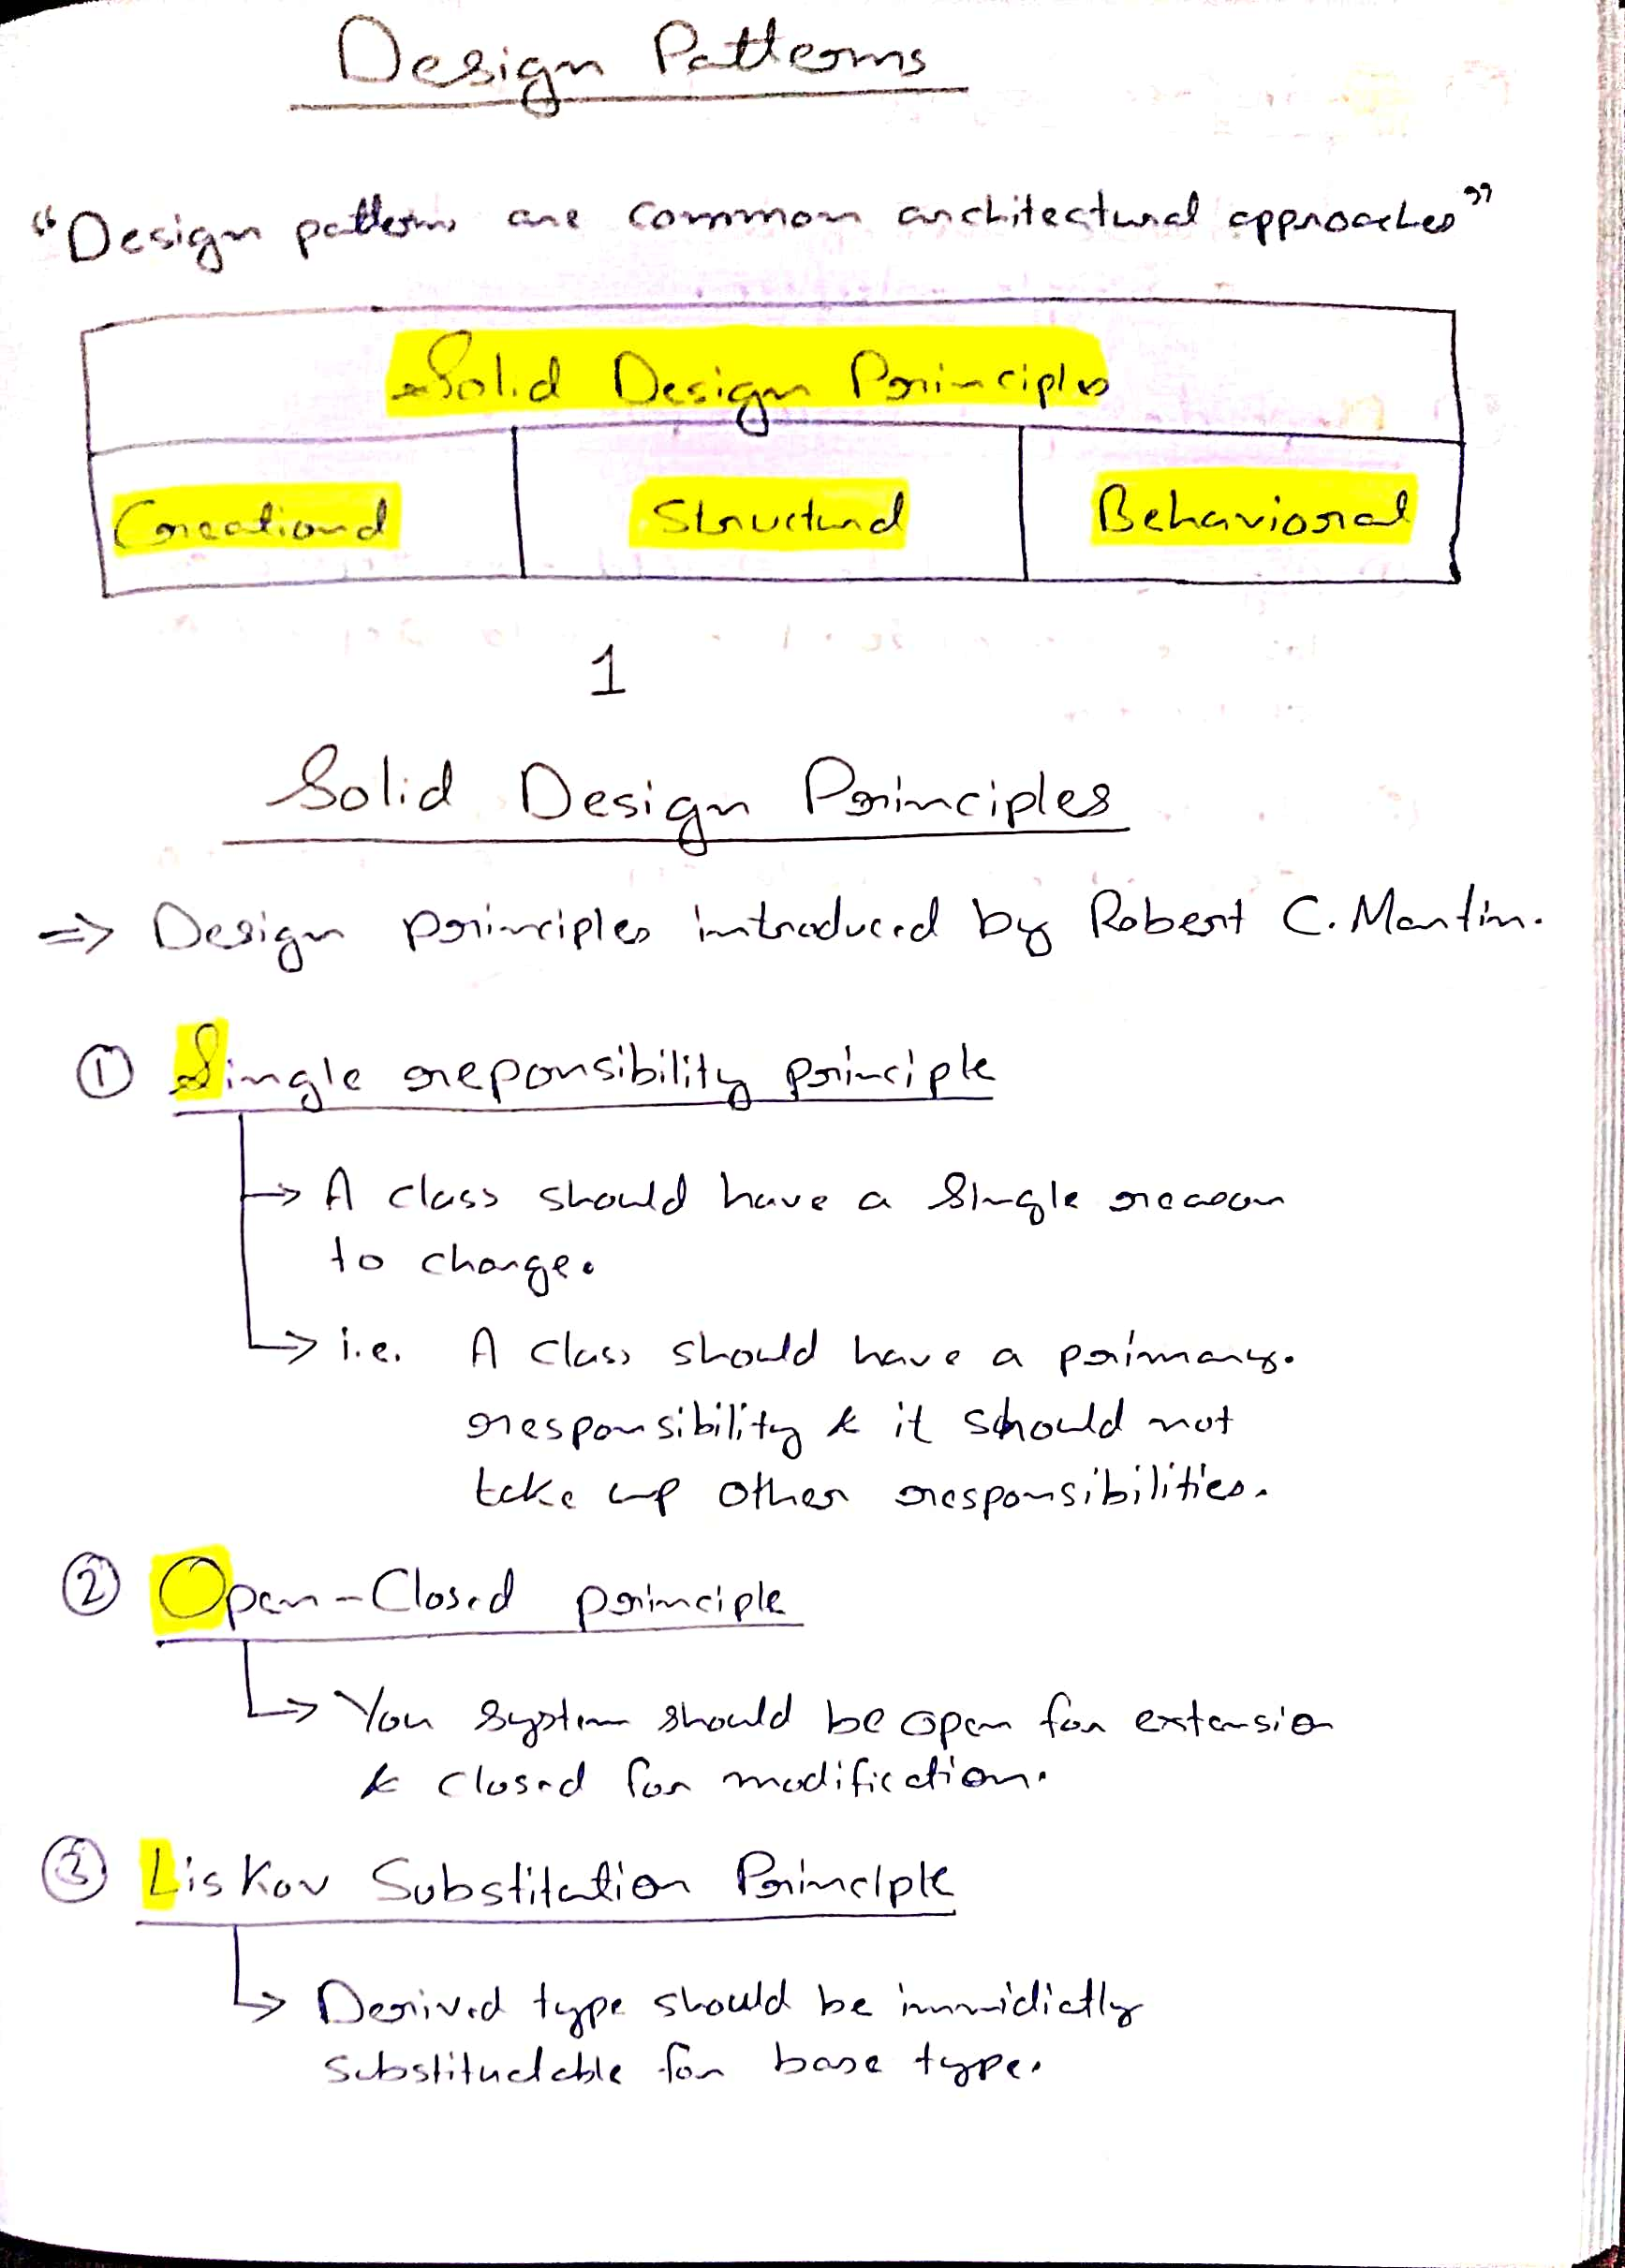 Design Patterns
“Design patterns are common architectural approaches”
Solid Design Principles
Creational Structural Behavioral
1
Solid Design Principles
=> Design principles introduced by Robert C. Martin.
① Single reponsibility principle
→ A class should have a single reason
to change.
→ i.e. A class should have a primary.
responsibility & it should not
take up other responsibilities.
② Open-Closed principle
→ You system should be open for extension
& closed for modification.
③ Liskov Substitution Principle
→ Derived type should be immidiatly
substitutable for base type.